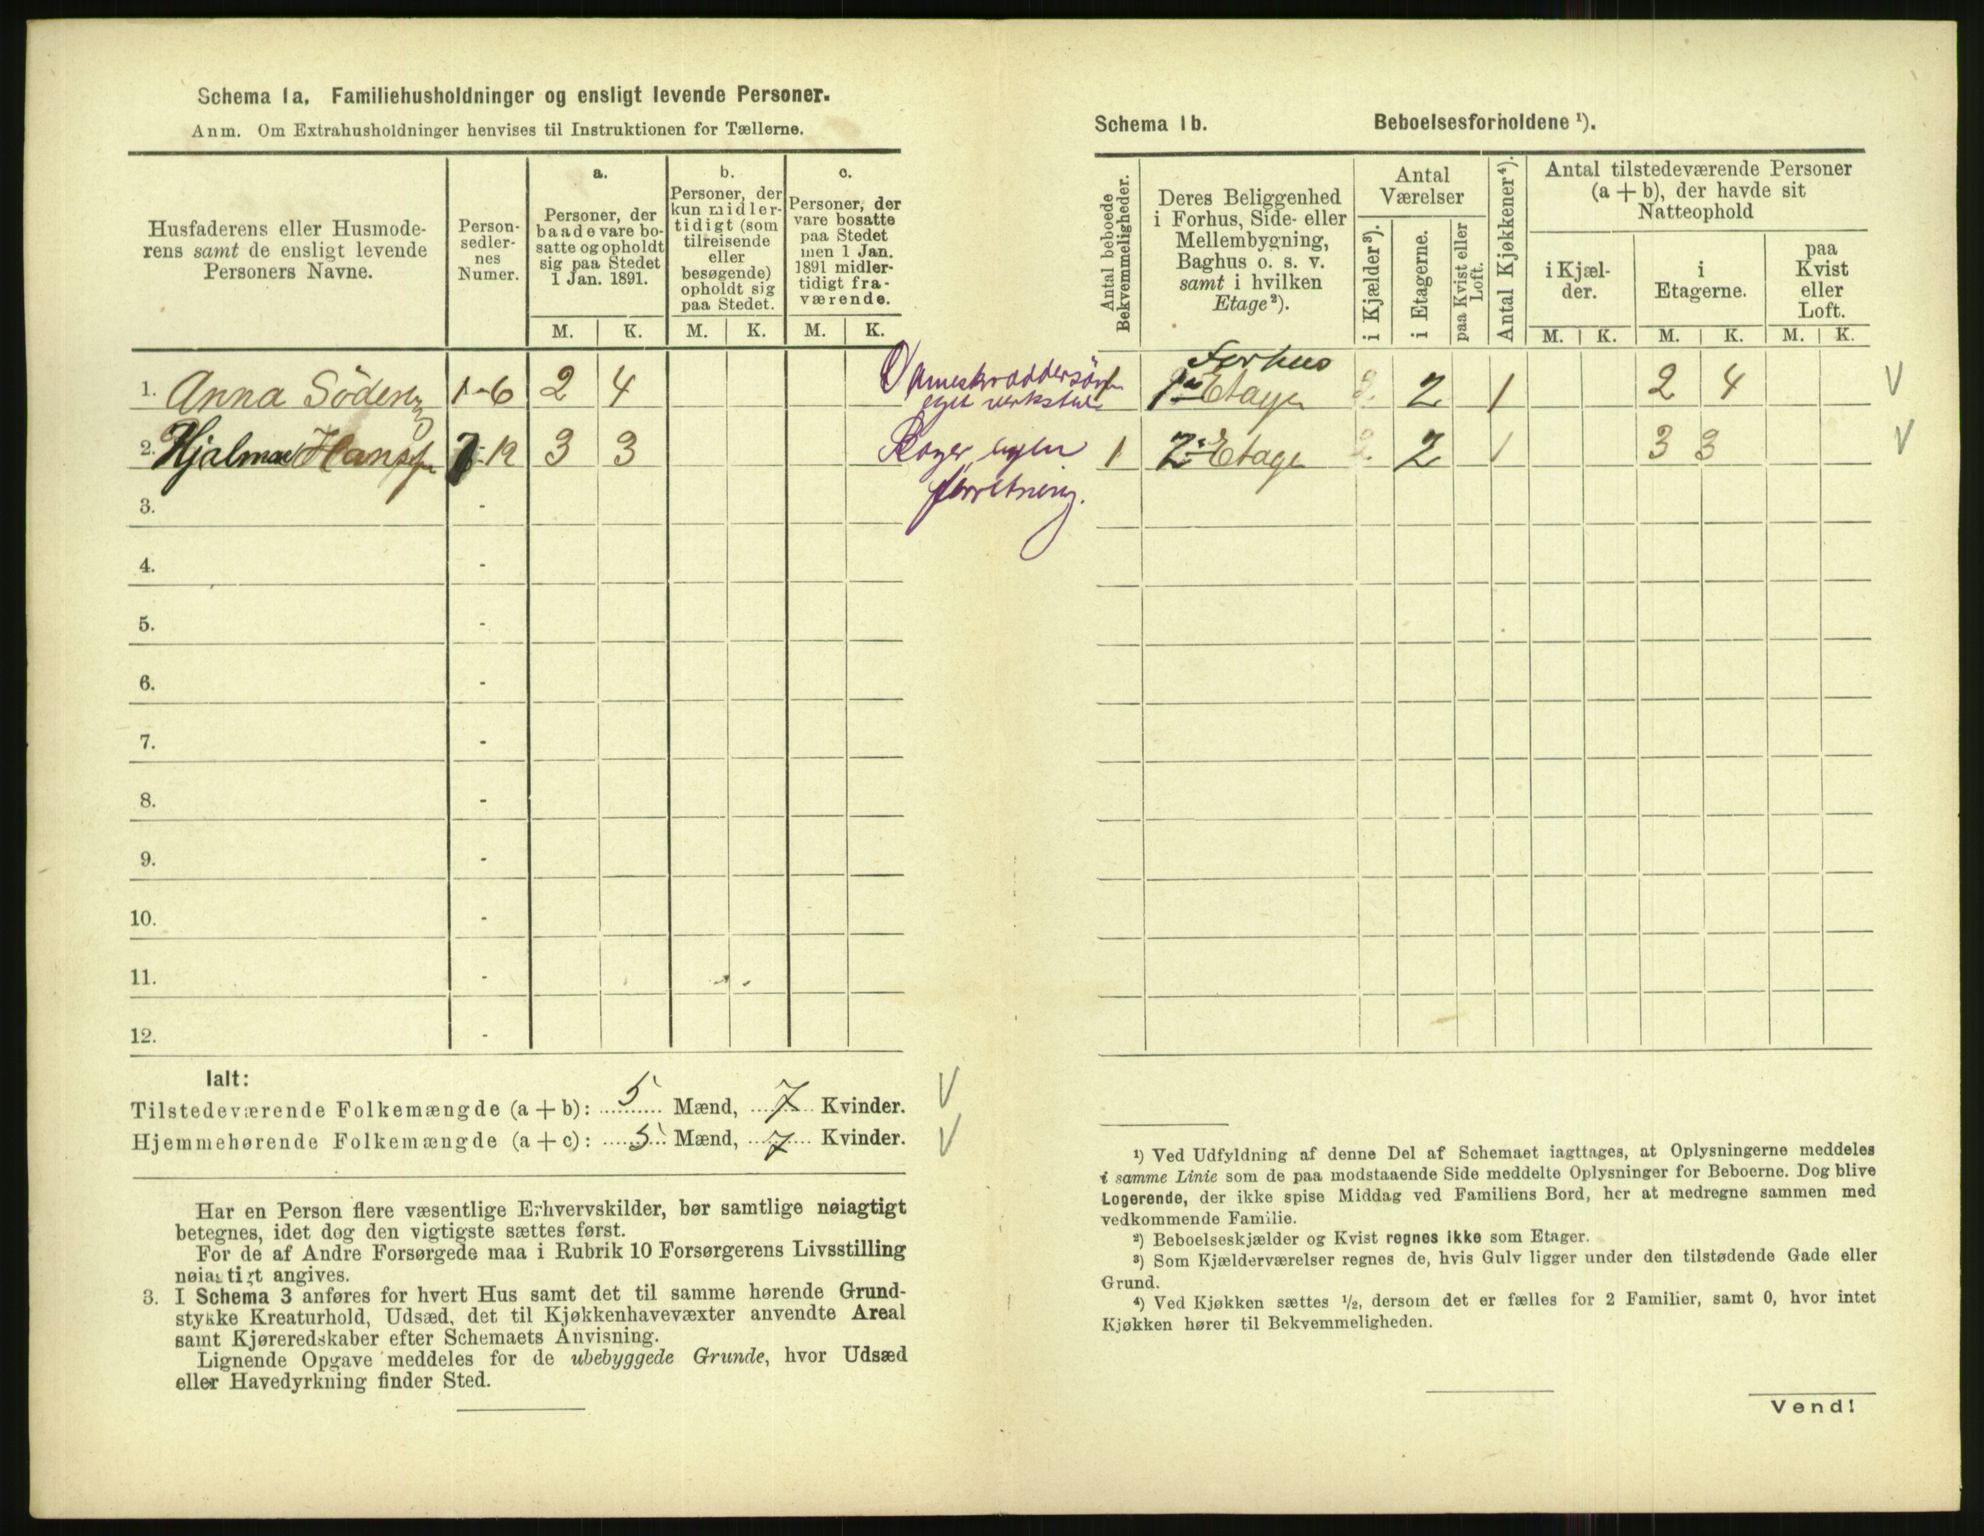 Schema 1a. Familiehusholdninger og ensligt levende Personer.
Anm. Om Extrahusholdninger henvises til Instruktionen for Tællerne.
Husfaderens eller Husmode-
rens samt de ensligt levende
Personers Navne.
Person-
sedler-
nes
Numer.
a.
Personer, der
baade vare bo-
satte og opholdt
sig paa Stedet
1 Jan. 1891.
b.
Personer, der
kun midler-
tidigt (som
tilreisende
eller
besøgende)
opholdt sig
paa Stedet.
c.
Personer, der
vare bosatte
paa Stedet
men 1 Jan.
1891 midler-
tidigt fra-
værende.
M. K. M. K. M. K.
1. Anna 1-6 2 4
2. Hjalmar Hansen 7-12 3 3
3. -
4. -
5. -
6. -
7. -
8. -
9. -
10. -
11. -
12. -
Ialt:
Tilstedeværende Folkemængde (a + b): 5 Mænd, 7 Kvinder.
Hjemmehørende Folkemængde (a + c): 5 Mænd, 7 Kvinder.
Har en Person flere væsentlige Erhvervskilder, bør samtlige nøiagtigt
betegnes, idet dog den vigtigste sættes først.
For de af Andre Forsørgede maa i Rubrik 10 Forsørgerens Livsstilling
nøiagtigt angives.
3. I Schema 3 anføres for hvert Hus samt det til samme hørende Grund-
stykke Kreaturhold, Udsæd, det til Kjøkkenhavevæxter anvendte Areal
samt Kjøreredskaber efter Schemaets Anvisning.
Lignende Opgave meddeles for de ubebyggede Grunde, hvor Udsæd
eller Havedyrkning finder Sted.
eget
egen
forretning.
Schema 1b. Beboelsesforholdene ¹).
Antal beboede
Bekvemmeligheder.
Deres Beliggenhed
i Forhus, Side- eller
Mellembygning,
Baghus o. s. v.
samt i hvilken
Etage²).
Antal
Værelser
i Kjælder³).
i Etagerne.
paa Kvist eller
Loft.
Antal Kjøkkener⁴).
Antal tilstedeværende Personer
(a + b), der havde sit
Natteophold
i Kjæl-
der.
i
Etagerne.
paa
Kvist
eller
Loft.
M. K. M. K. M. K.
Forhus
1 1ste Etage 2 1 2 4
1 2. Etage 2 1 3 3
¹) Ved Udfyldning af denne Del af Schemaet iagttages, at Oplysningerne meddeles
i samme Linie som de paa modstaaende Side meddelte Oplysninger for Beboerne. Dog blive
Logerende, der ikke spise Middag ved Familiens Bord, her at medregne sammen med
vedkommende Familie.
²) Beboelseskjælder og Kvist regnes ikke som Etager.
³) Som Kjælderværelser regnes de, hvis Gulv ligger under den tilstødende Gade eller
Grund.
⁴) Ved Kjøkken sættes ½, dersom det er fælles for 2 Familier, samt 0, hvor intet
Kjøkken hører til Bekvemmeligheden.
Vend!